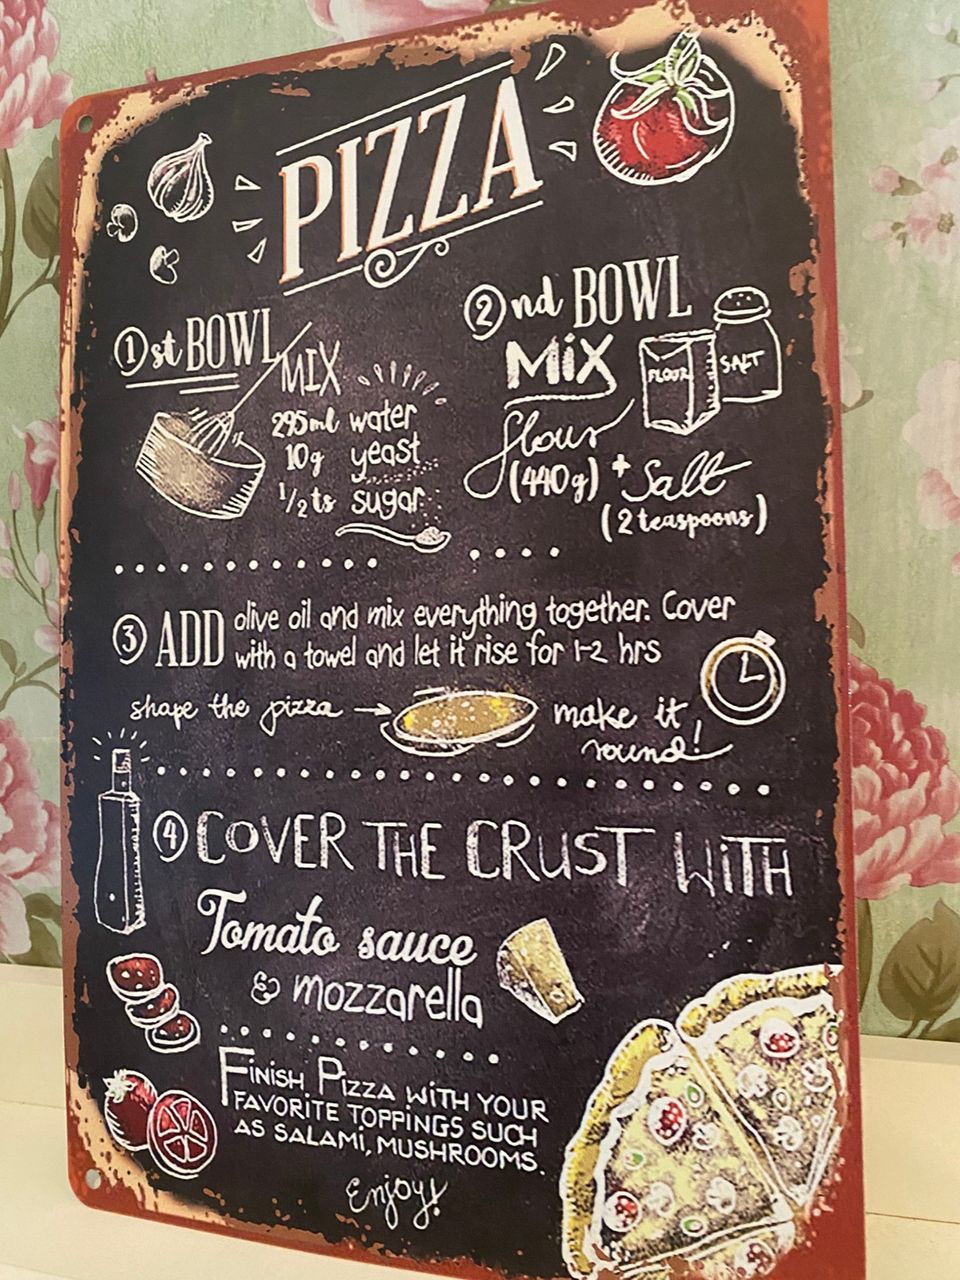 PIZZA
1st BOWL
MIX
295ml water
10g yeast
1/2 ts sugar
2nd BOWL
MiX
FLOUR
SALT
flour
(440g) + Salt
(2 teaspoons)
3 ADD olive oil and mix everything together. Cover
with a towel and let it rise for 1-2 hrs
shape the pizza → make it
round!
4 COVER THE CRUST WITH
Tomato sauce
& mozzarella
FINISH PIZZA WITH YOUR
FAVORITE TOPPINGS SUCH
AS SALAMI, MUSHROOMS.
Enjoy!